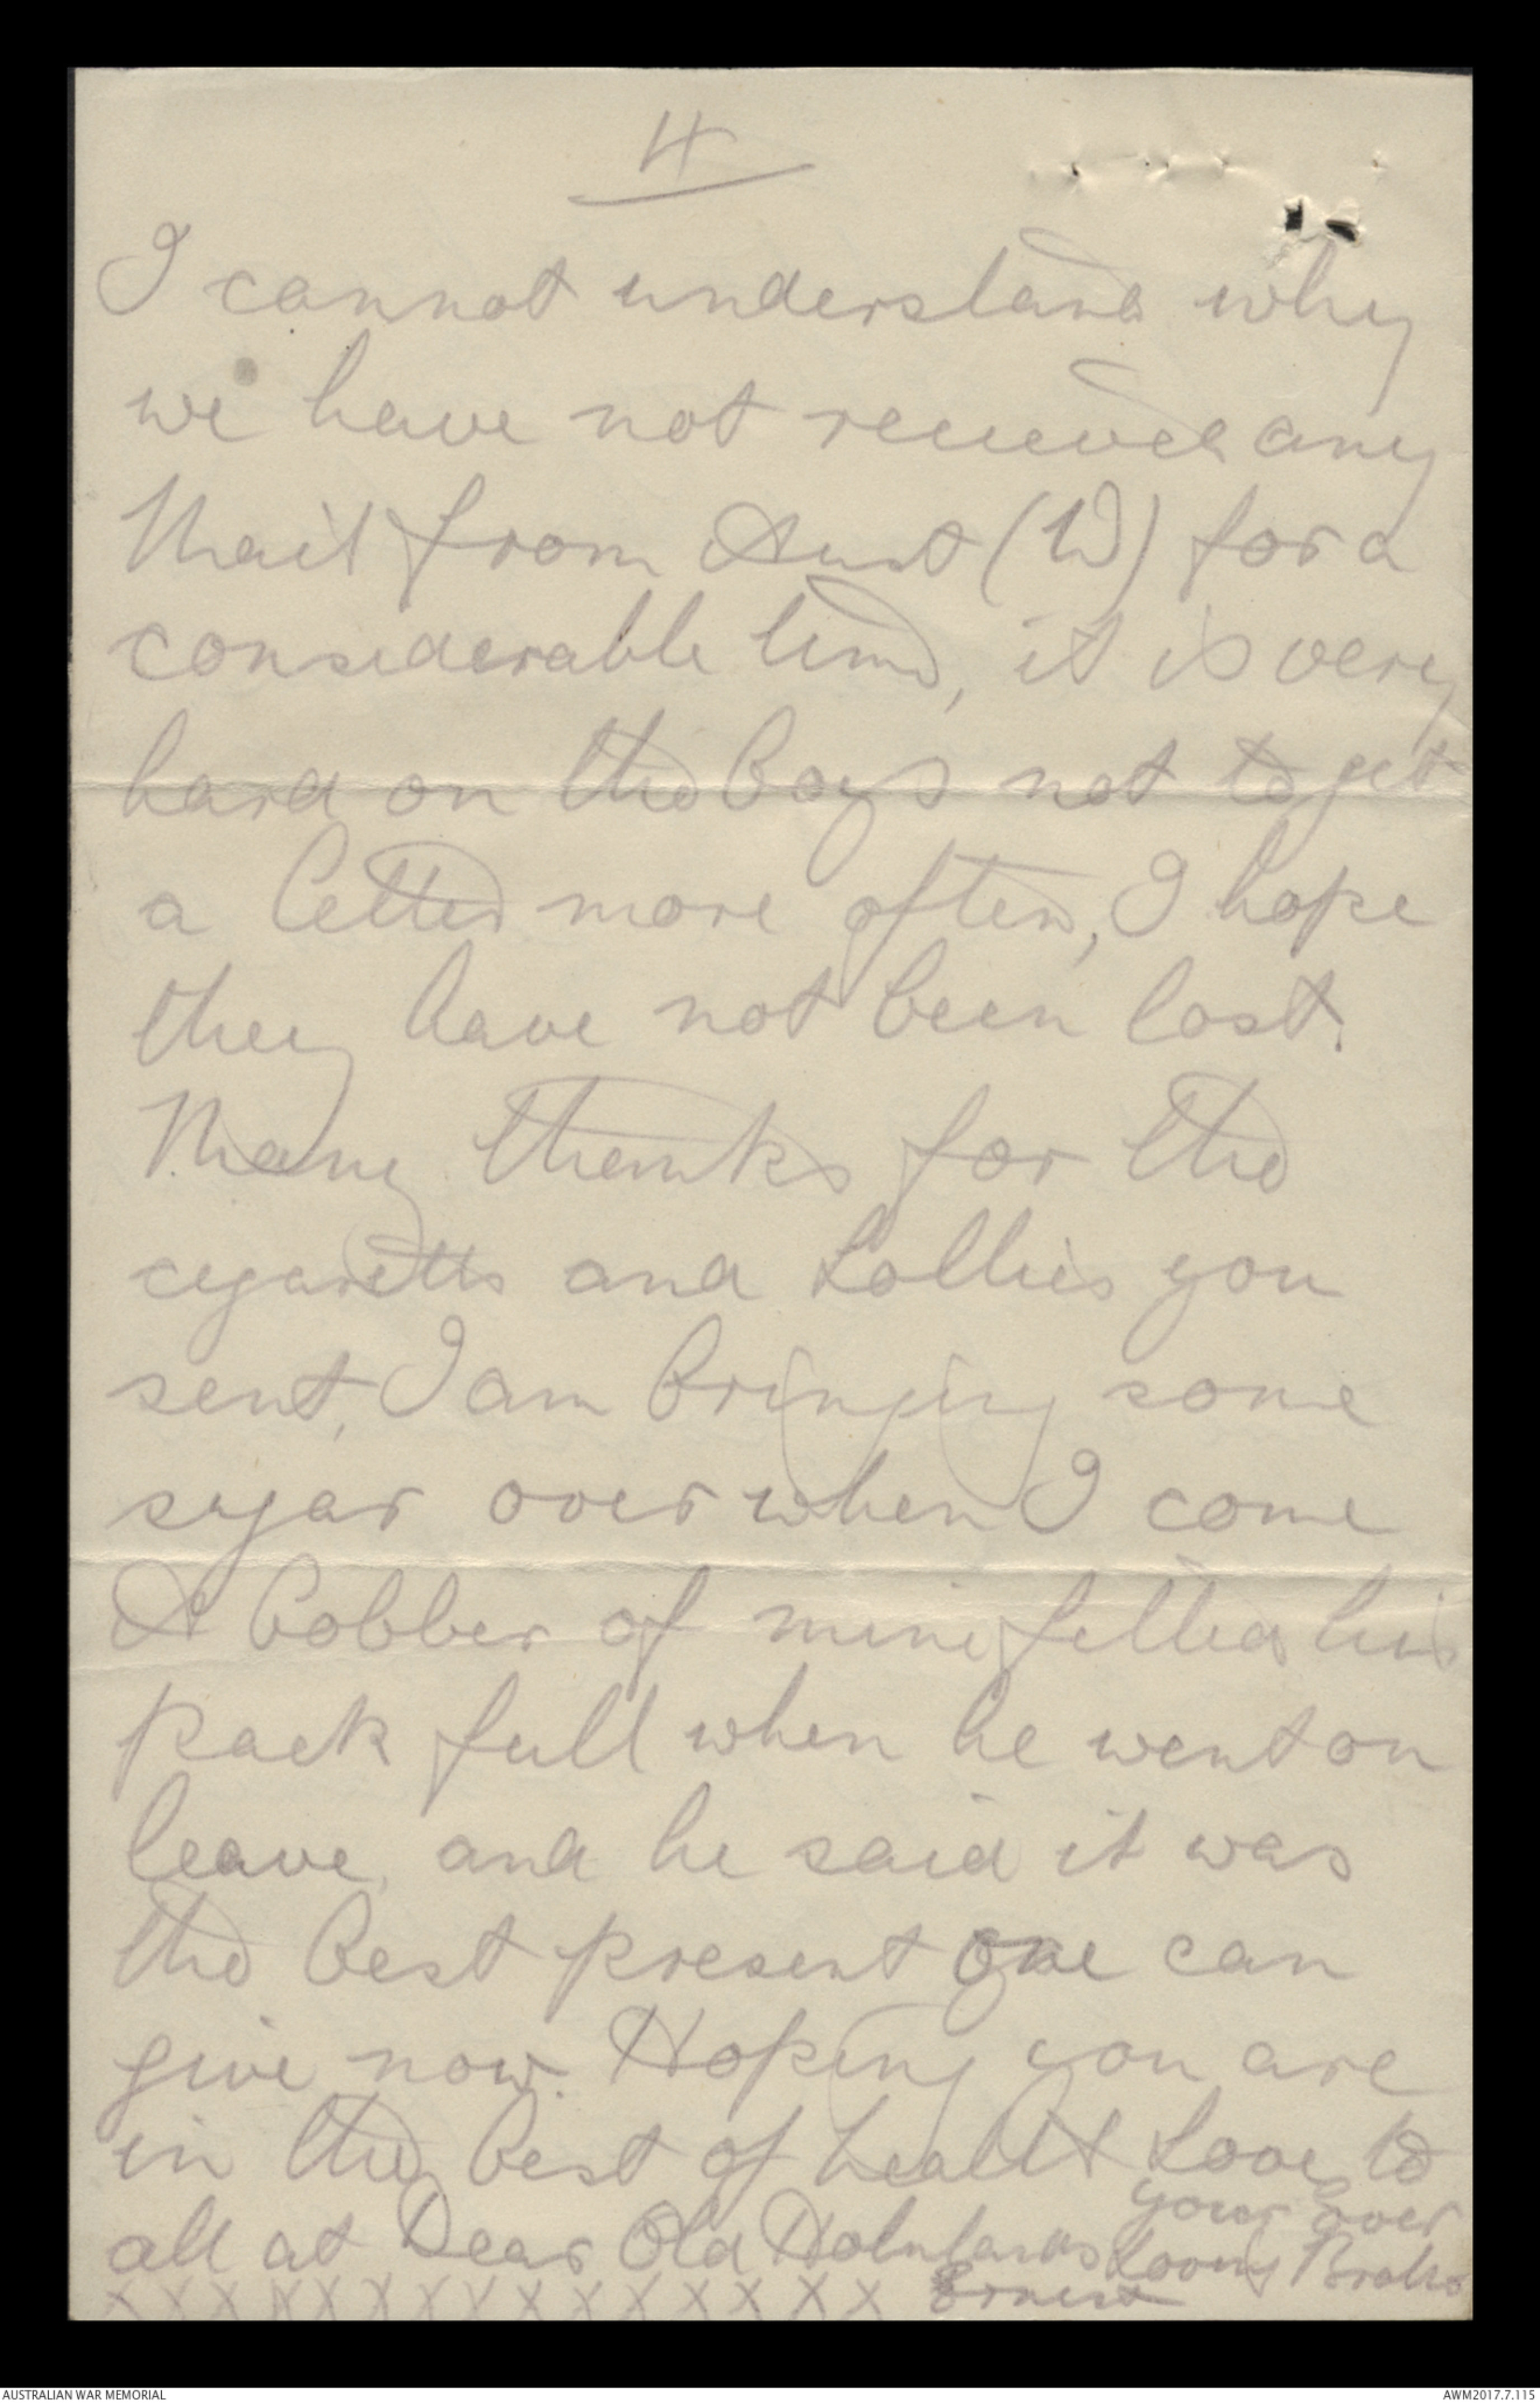 4
I cannot understand why
we have not received any
Mail from Aust (W) for a
considerable time, it is very
hard on the Boys not to get
a letter more often, I hope
they have not been lost.
Many thanks for the
cigaretts and Lollies you
sent, I am Bringing some
sugar over when I come
A Cobber of mine filled his
pack full when he went on
leave, and he said it was
the Best present one can
give now. Hoping you are
in the Best of health Love to
all at Dear Old
your ever
Loving Brother
Ernest
X X X X X X X X X X X X X X X X X
AUSTRALIAN WAR MEMORIAL
AWM2017.7.115